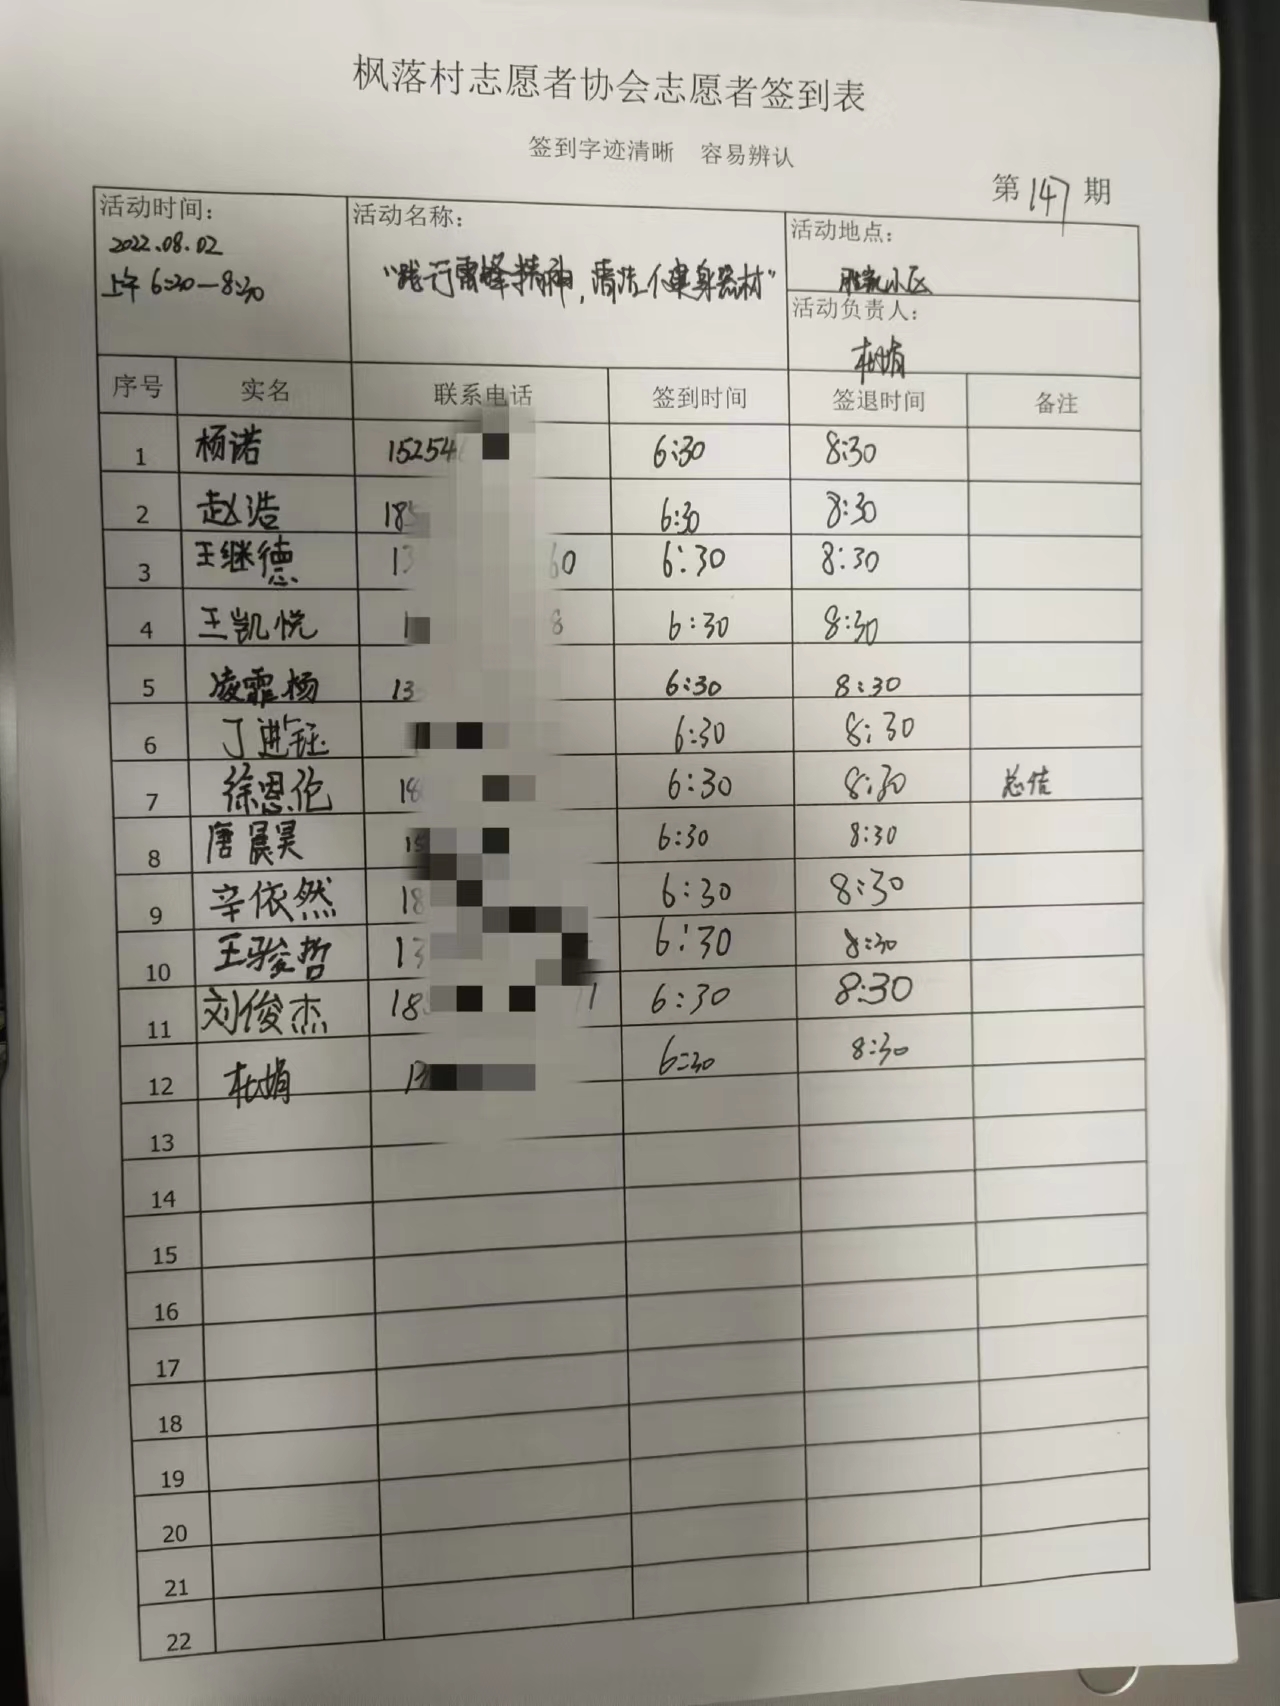 枫落村志愿者协会志愿者签到表
签到字迹清晰 容易辨认
第 147 期
活动时间：
2022.08.02
上午 6:30—8:30
活动名称：
“践行雷锋精神，清洁健身器材”
活动地点：
小区
活动负责人：
杜娟
序号 实名 联系电话 签到时间 签退时间 备注
1 杨诺 15254 6:30 8:30
2 赵浩 18 6:30 8:30
3 王继德 13 60 6:30 8:30
4 王凯悦 1 8 6:30 8:30
5 凌霏杨 13 6:30 8:30
6 丁进钰 1 6:30 8:30
7 徐恩伦 18 6:30 8:30 总结
8 唐晨昊 15 6:30 8:30
9 辛依然 18 6:30 8:30
10 王骏哲 13 6:30 8:30
11 刘俊杰 18 1 6:30 8:30
12 杜娟 13 6:30 8:30
13
14
15
16
17
18
19
20
21
22